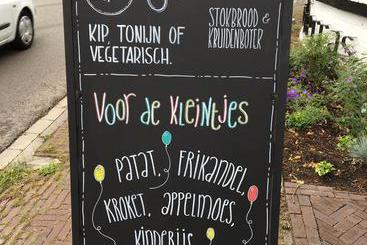 STOKBROOD &
KRUIDENBOTER
KIP, TONIJN OF
VEGETARISCH.
Voor de kleintjes
PATAT, FRIKANDEL,
KROKET, APPELMOES,
KINDERIJS